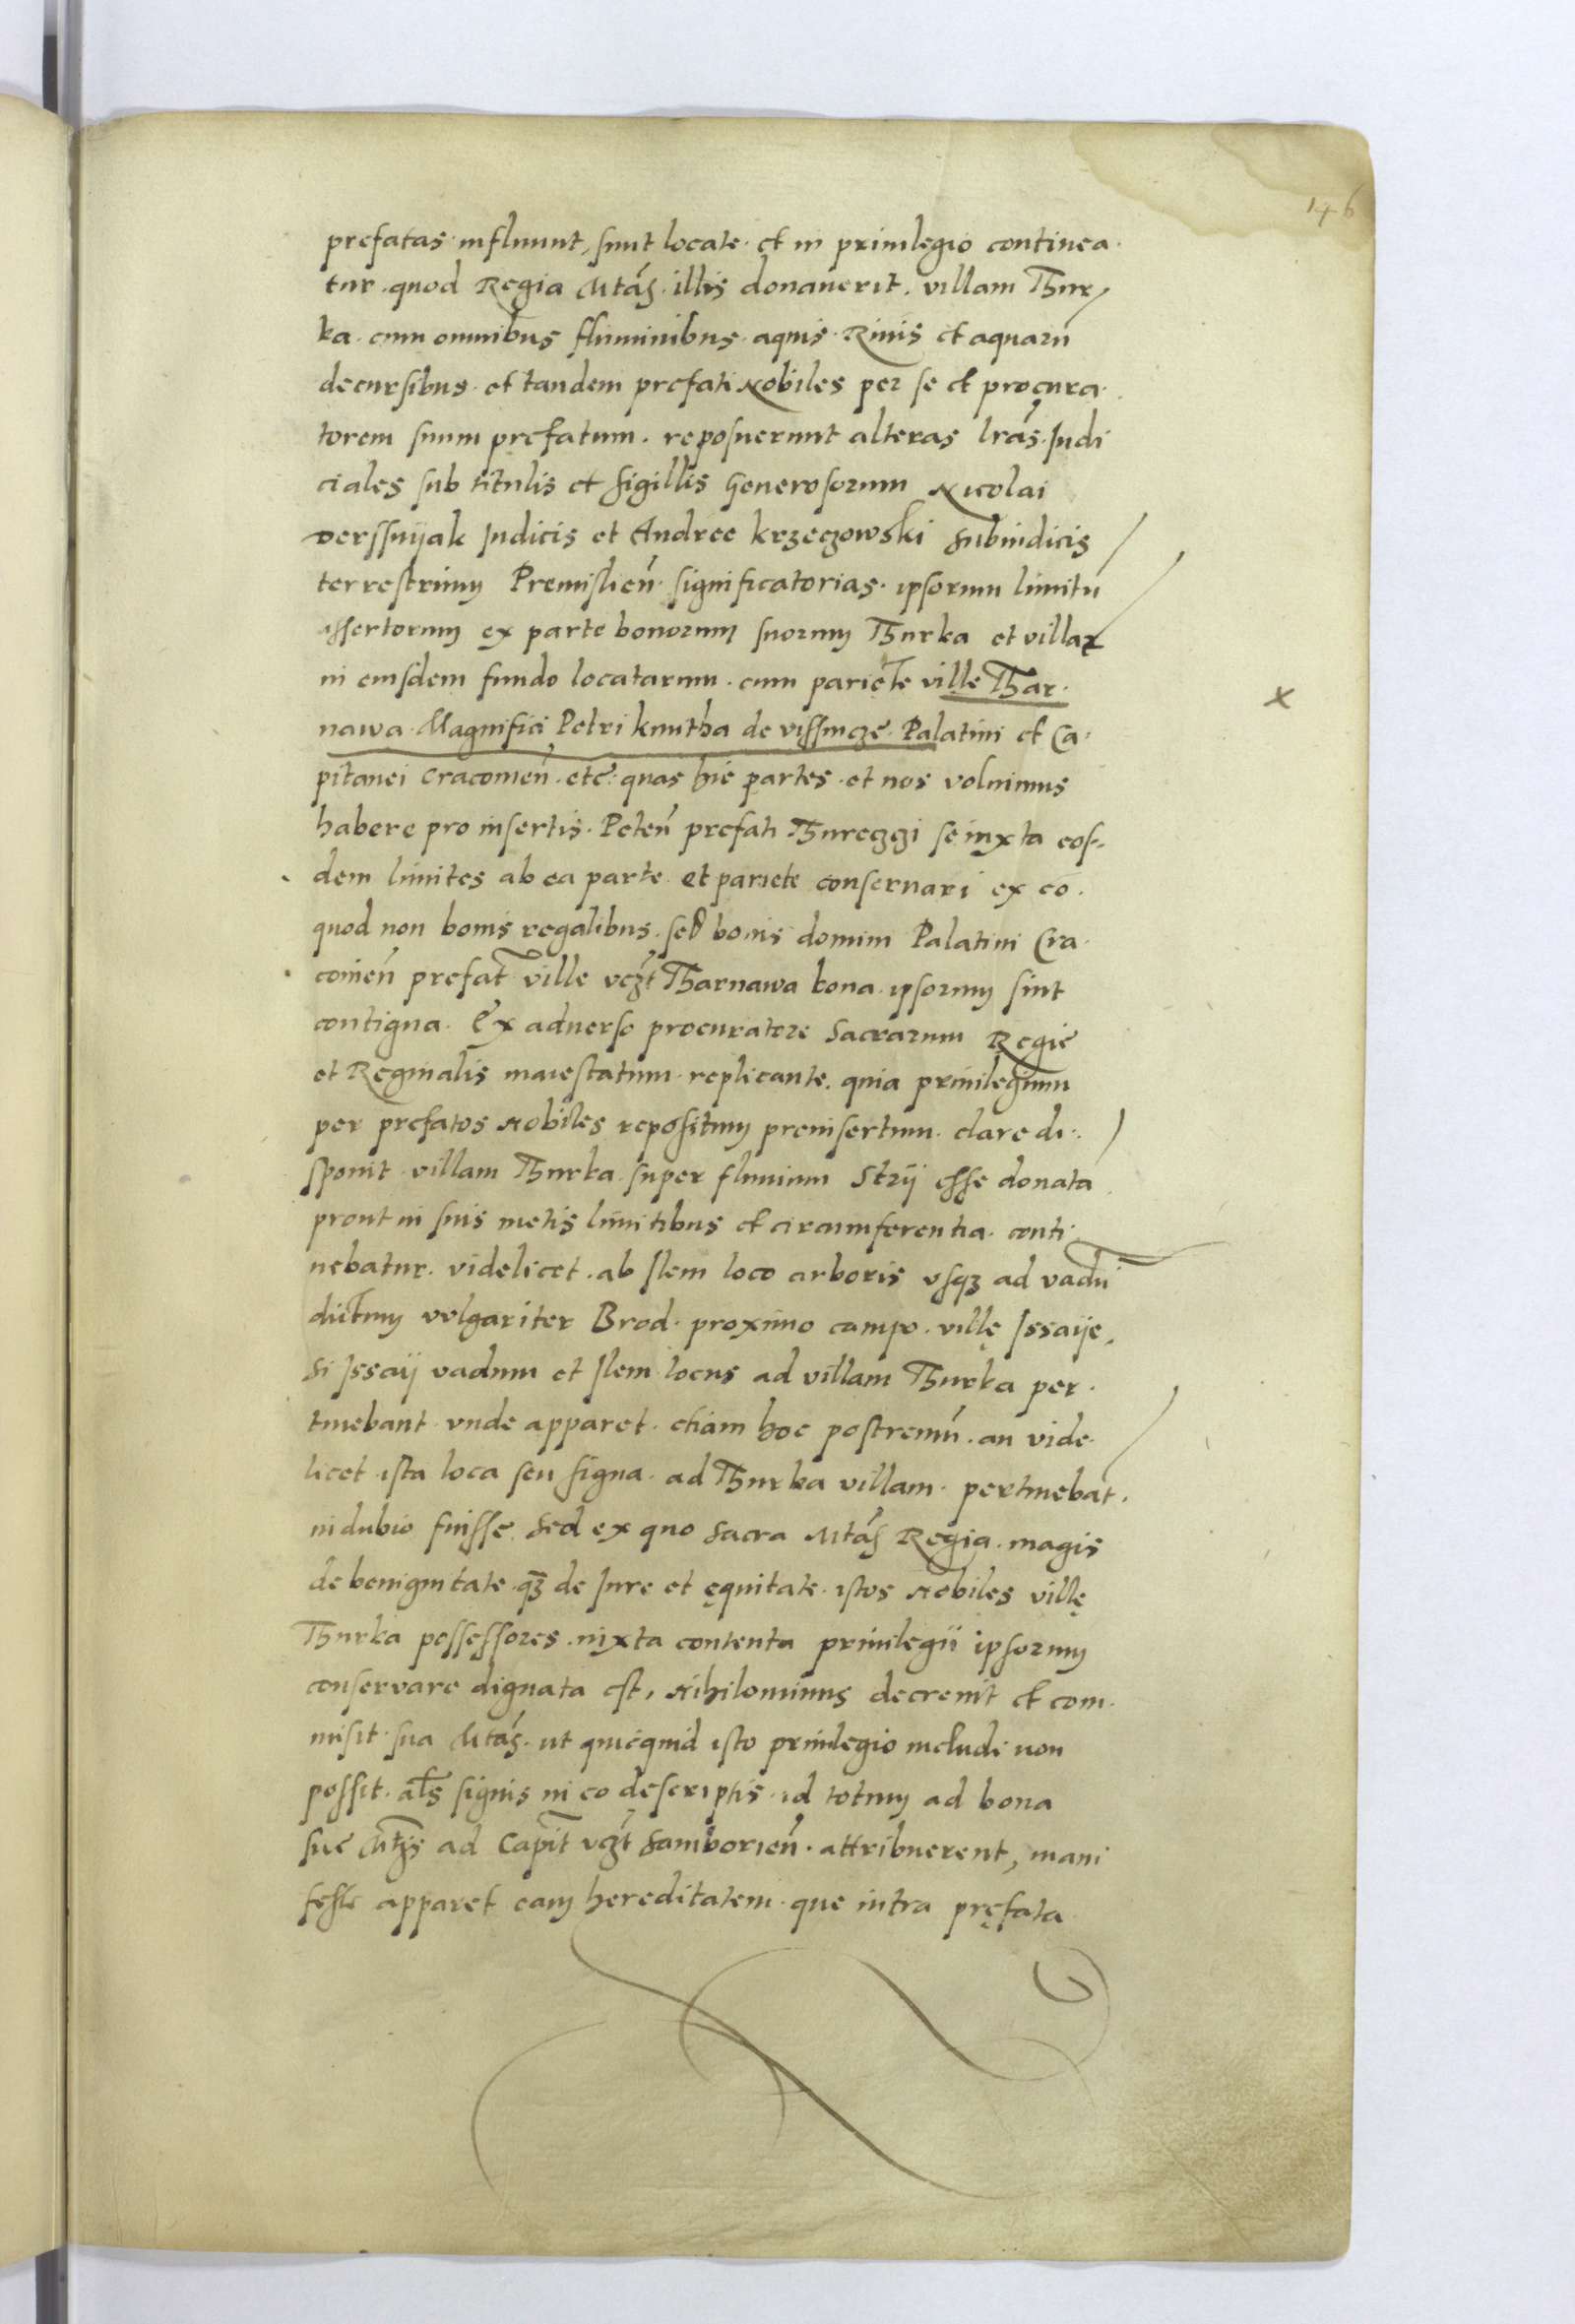 146
prefatas influunt, sunt locate. et in priuilegio continea.
tur. quod Regia Mtás. illis donauerit. villam Thur
ka. cum omnibus fluminibus. aquis. Riuis et aquarū
decursibus. et tandem prefati Nobiles per se et procura.
torem suum prefatum. reposuerunt alteras lrás. Judi
ciales sub titulis et sigillis Generosorum Nicolai
Derssnijak Judicis et Andree krzeczowski Subiudicis
terrestrium Premislieñ. significatorias. ipsorum limitū
assertorum ex parte bonorum suorum Thurka et villaꝝ
in eiusdem fundo locatarum. cum pariete ville Thar.
nawa. Magnifici Petri kmitha de vissnicze. Palatini et Ca.
pitanei Cracouieñ. etc̄. quas hic partes. et nos voluimus
habere pro insertis. Peteñ prefati Thureczgi se iuxta eos.
dem limites ab ea parte et pariete conseruari ex eo.
quod non bonis regalibus. sed bonis domini Palatini Cra.
couieñ prefat̄ ville vcꝫt Tharnawa bona. ipsorum sint
contigua. Ex aduerso procuratore Sacrarum Regie
et Reginalis maiestatum. replicante. quia priuilegium
per prefatos Nobiles repositum preinsertum. clare di.
sponit. villam Thurka. super fluuium Strij esse donata
prout in suis metis limitibus et circumferentia. conti
nebatur. videlicet. ab Ilem loco arboris vsqꝫ ad vadū
dictum vulgariter Brod. proximo campo. villę Issaije.
Si Issaij vadum et Ilem locus ad villam Thurka per.
tinebant. vnde apparet. etiam hoc postremū. an vide.
licet ista loca seu signa. ad Thurka villam. pertinebāt.
in dubio fuisse. Sed ex quo Sacra Mtás Regia. magis
de benignitate. qꝫ de Jure et ęquitate. istos Nobiles villę
Thurka possessores. iuxta contenta priuilegii ipsorum
conservare dignata est, Nihilominus decreuit et com.
misit. sua Mtás. ut quicquid isto priuilegio includi non
possit. al̄s signis in eo descriptis. id totum ad bona
sue Mt̄is ad Capit̄ vcꝫt Samborieñ. attribuerent, mani
feste apparet eam hereditatem. que intra pręfata